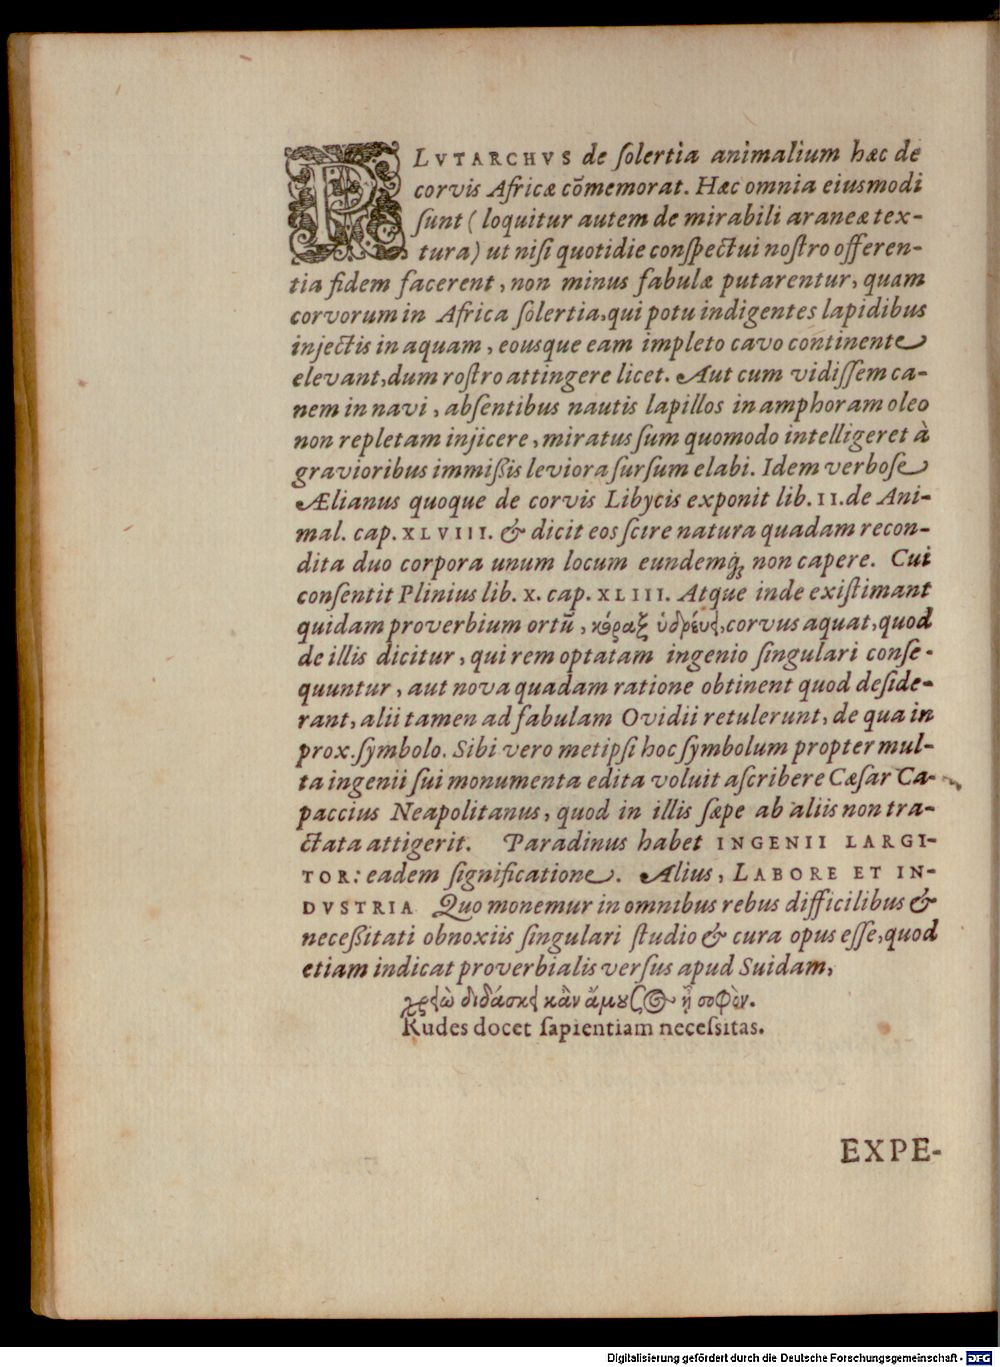 PLVTARCHVS de ſolertia animalium hæc de
corvis Africæ cõmemorat. Hæc omnia eiusmodi
ſunt ( loquitur autem de mirabili araneæ tex-
tura) ut niſi quotidie conſpectui noſtro offeren-
tia fidem facerent, non minus fabulæ putarentur, quam
corvorum in Africa ſolertia, qui potu indigentes lapidibus
injectis in aquam, eousque eam impleto cavo continente
elevant, dum roſtro attingere licet. Aut cum vidiſſem ca-
nem in navi, abſentibus nautis lapillos in amphoram oleo
non repletam injicere, miratus ſum quomodo intelligeret à
gravioribus immißis leviora ſurſum elabi. Idem verboſe
Ælianus quoque de corvis Libycis exponit lib. II. de Ani-
mal. cap. XLVIII. & dicit eos ſcire natura quadam recon-
dita duo corpora unum locum eundemq́ꝫ non capere. Cui
conſentit Plinius lib. X. cap. XLIII. Atque inde exiſtimant
quidam proverbium ortũ, κόραξ ὑδρεύει, corvus aquat, quod
de illis dicitur, qui rem optatam ingenio ſingulari conſe-
quuntur, aut nova quadam ratione obtinent quod deſide-
rant, alii tamen ad fabulam Ovidii retulerunt, de qua in
prox. ſymbolo. Sibi vero metipſi hoc ſymbolum propter mul-
ta ingenii ſui monumenta edita voluit aſcribere Cæſar Ca-
paccius Neapolitanus, quod in illis ſæpe ab aliis non tra-
ctata attigerit. Paradinus habet INGENII LARGI-
TOR: eadem ſignificatione. Alius, LABORE ET IN-
DVSTRIA Quo monemur in omnibus rebus difficilibus &
neceßitati obnoxiis ſingulari ſtudio & cura opus eſſe, quod
etiam indicat proverbialis verſus apud Suidam,
χρειὼ διδάσκει κἂν ἄμουσος ᾖ σοφὸν.
Rudes docet ſapientiam neceſsitas.
EXPE-
Digitalisierung gefördert durch die Deutsche Forschungsgemeinschaft - DFG